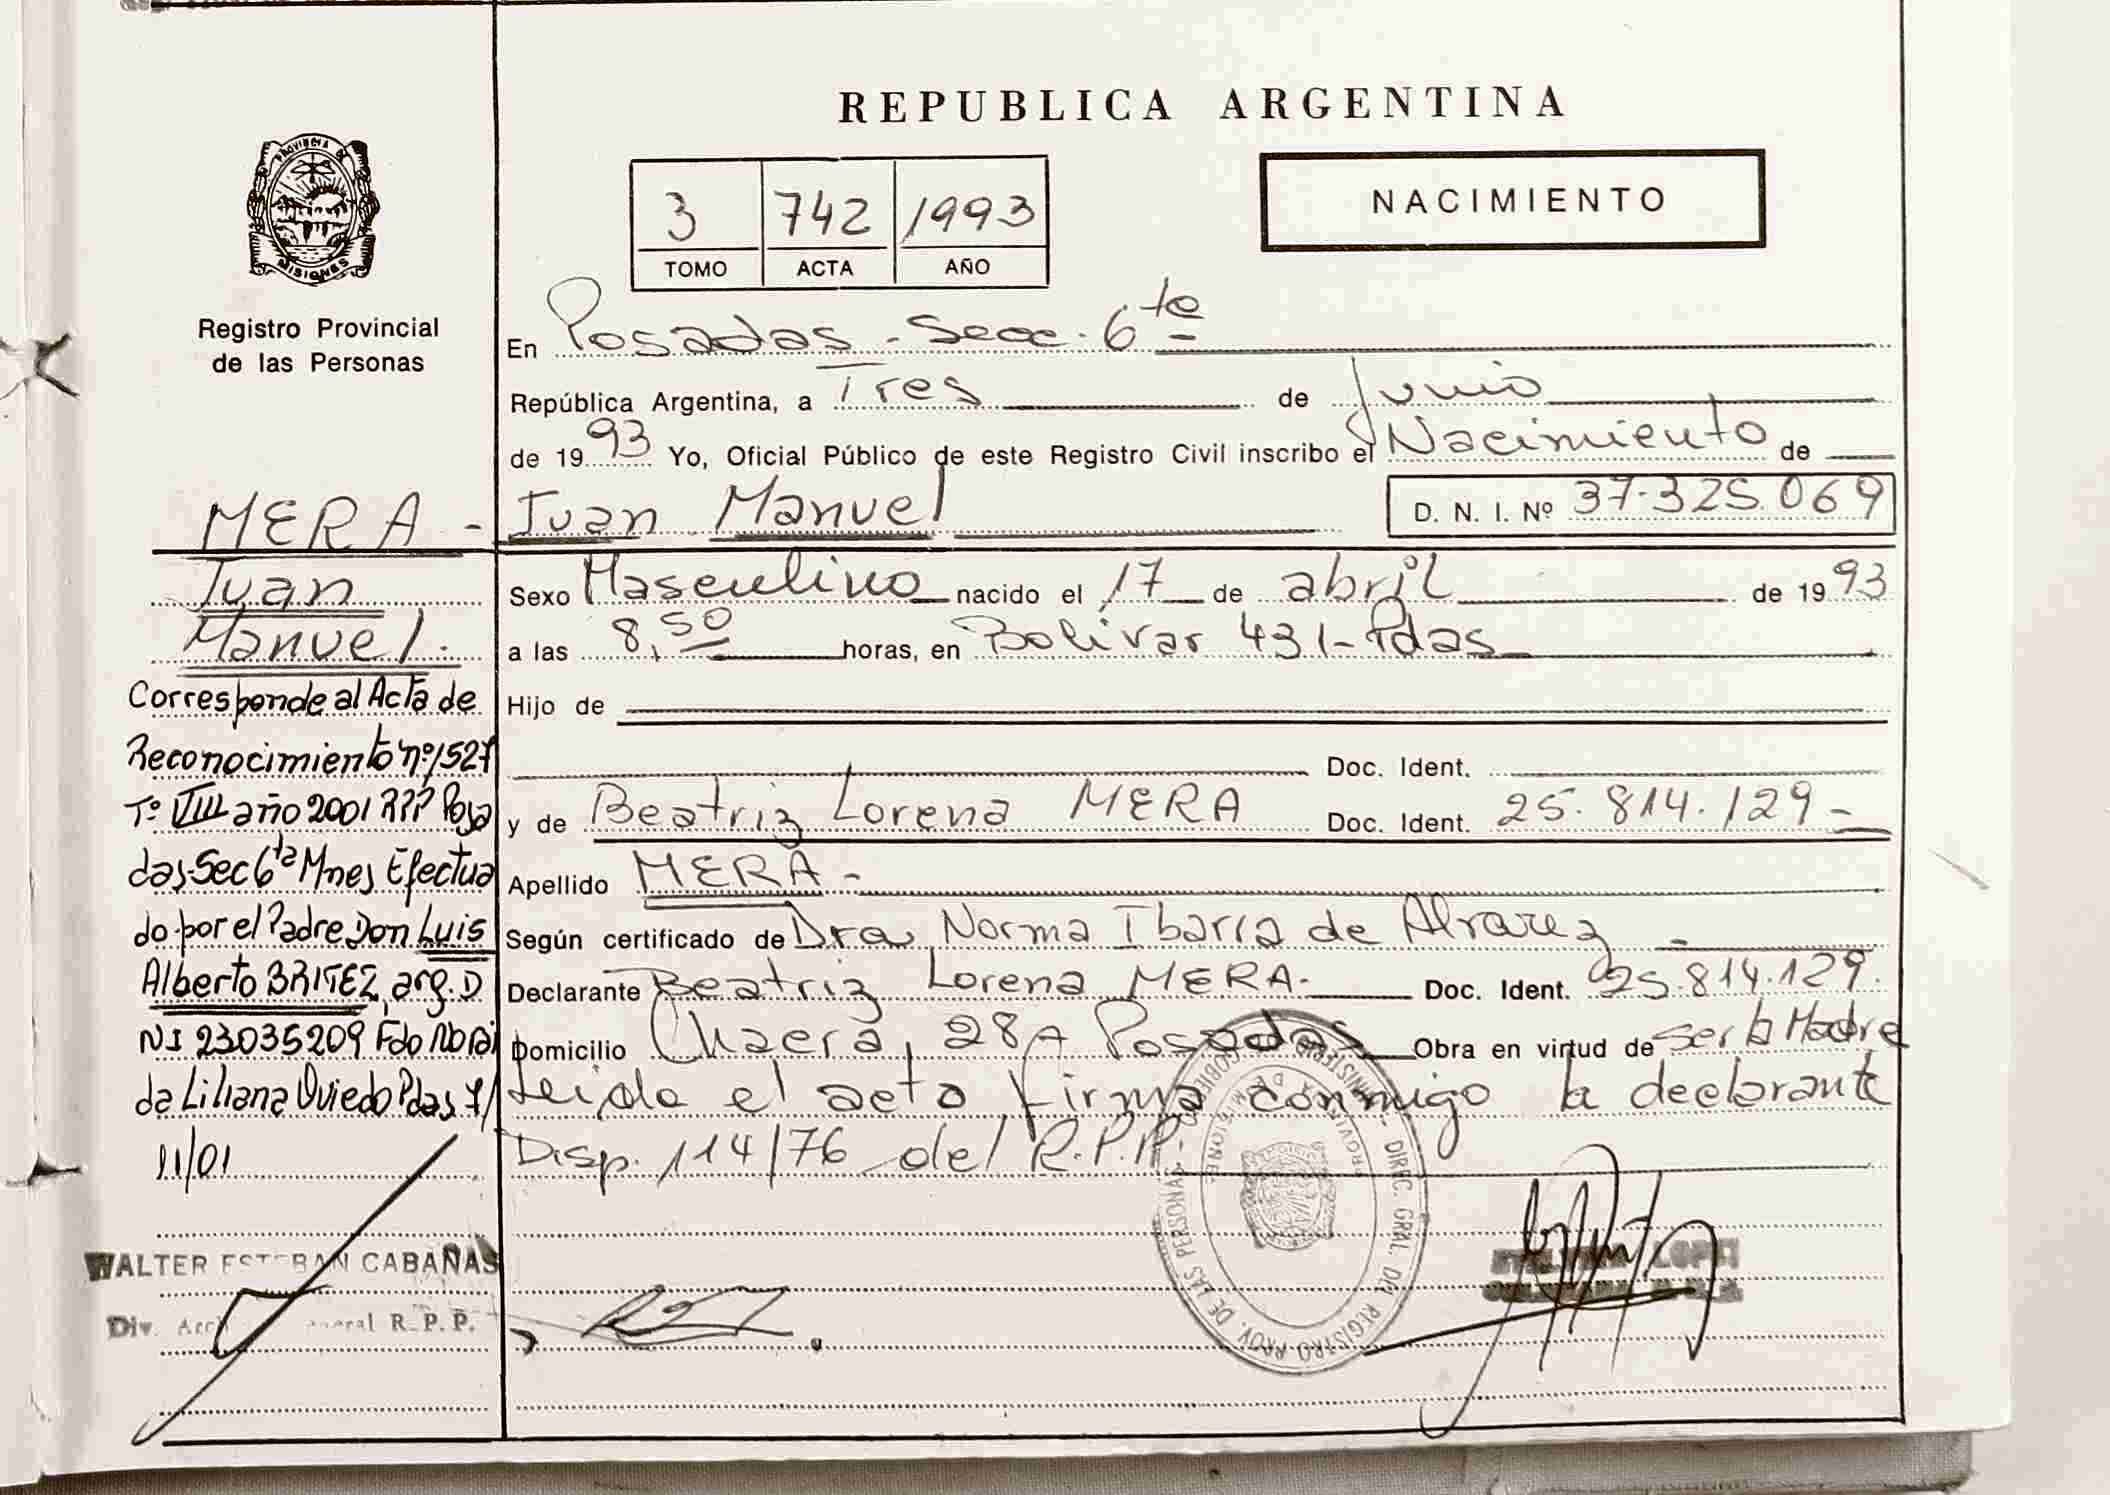 REPUBLICA ARGENTINA
PROVINCIA DE MISIONES
Registro Provincial
de las Personas
3 742 1993
TOMO ACTA AÑO
NACIMIENTO
En Posadas - Secc. 6ta
República Argentina, a Tres de Junio
de 1993 Yo, Oficial Público de este Registro Civil inscribo el Nacimiento de
MERA - Juan Manuel D. N. I. Nº 37.325.069
Juan
Manuel.
Corresponde al Acta de
Reconocimiento nº 1527
Tº VIII año 2001 RPP Posa
das-Sec 6ta Mnes Efectua
do por el Padre Don Luis
Alberto BRITEZ, arg. D
NI 23035209 Fdo Norai
da Liliana Oviedo Pdas 7/
11/01
WALTER ESTEBAN CABAÑAS
Div. R. P. P.
Sexo Masculino nacido el 17 de abril de 1993
a las 8,50 horas, en Bolivar 431 - Pdas
Hijo de
Doc. Ident.
y de Beatriz Lorena MERA Doc. Ident. 25.814.129 -
Apellido MERA -
Según certificado de Dra Norma Ibarra de Alvarez -
Declarante Beatriz Lorena MERA - Doc. Ident. 25.814.129.
Domicilio Chacra, 28 A Posadas Obra en virtud de ser la Madre
Leida el acta firma conmigo la declarante
Disp. 114/76 del R.P.P.
MINISTERIO GOBIERNO - DIREC. GRAL. DEL REGISTRO PROV. DE LAS PERSONAS
PROVINCIA DE MISIONES
LOPEZ